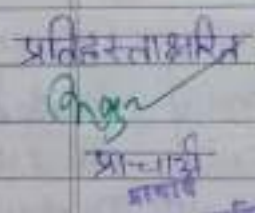 प्रतिहस्ताक्षरित
प्राचार्य
प्राचार्य